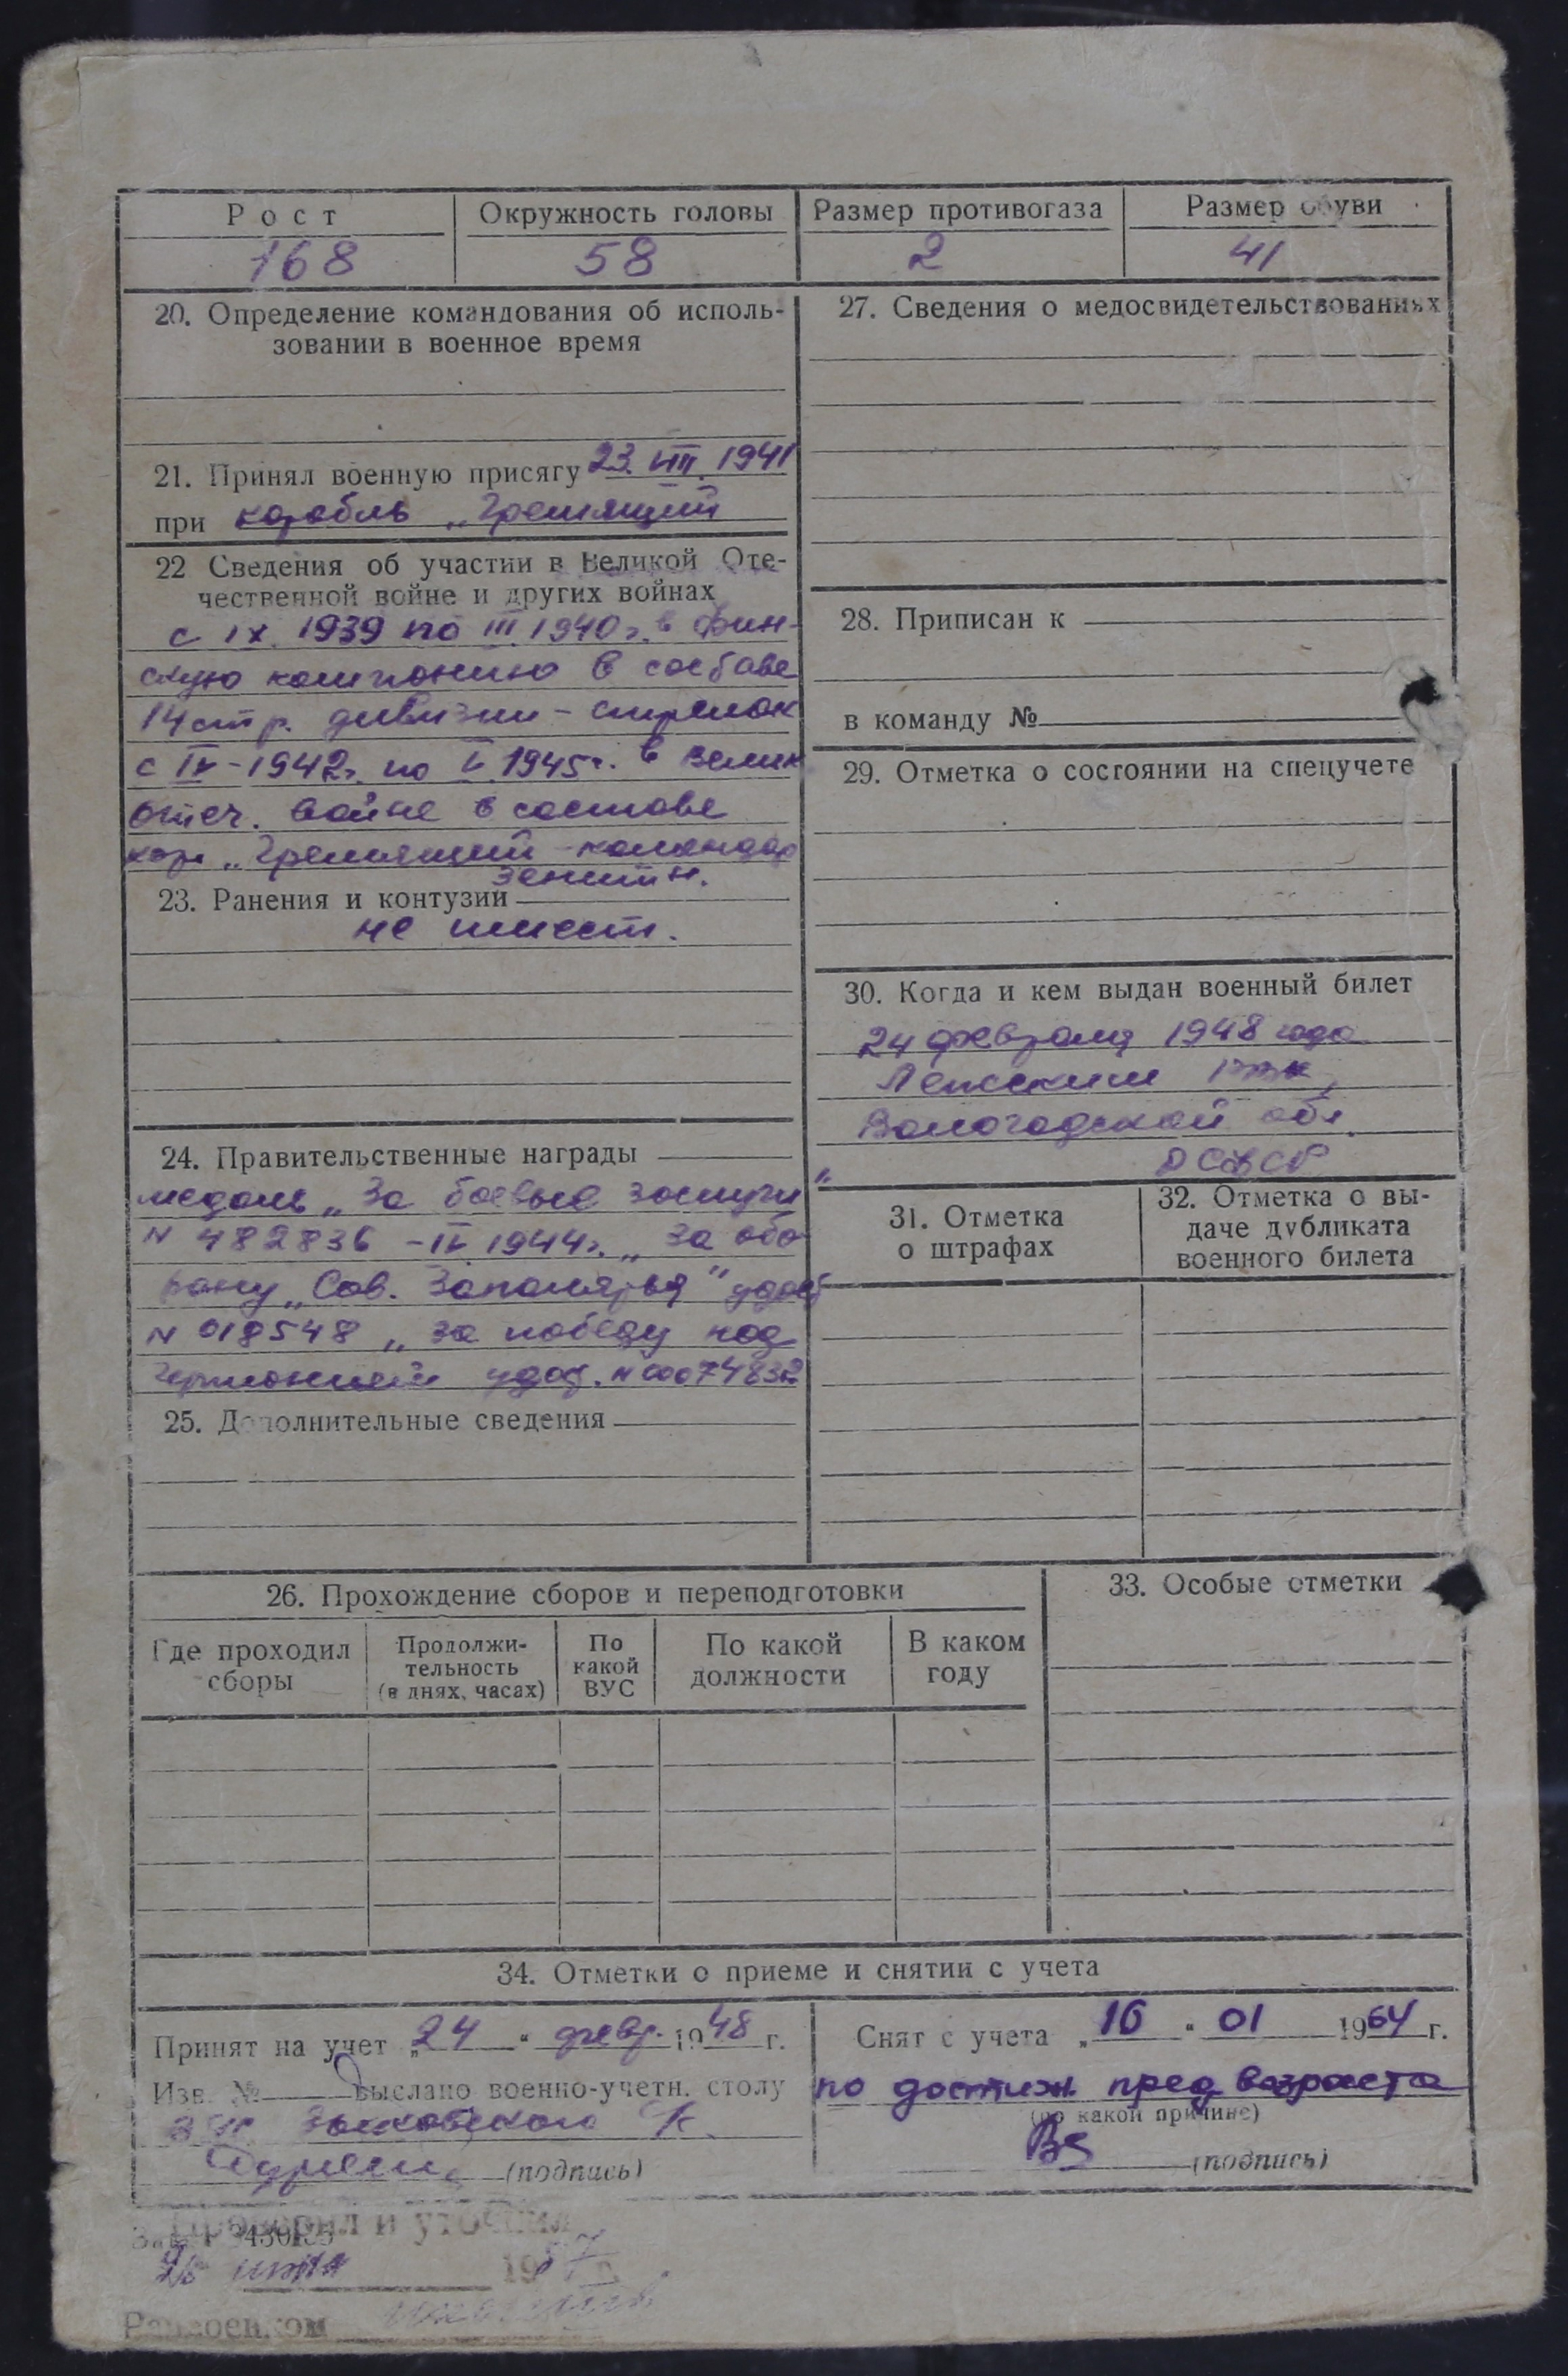 Рост
Окружность головы
Размер противогаза
Размер обуви
168
58
2
41
20. Определение командования об исполь-
зовании в военное время
21. Принял военную присягу 23. VIII. 1941
при корабль „Гремящий
22 Сведения об участии в Великой Оте-
чественной войне и других войнах
с IX. 1939 по III. 1940 г. в фин-
скую компонию в составе
14 стр. дивизии - стрелок
с IV-1942г. по V. 1945г. в Велик
отеч. войне в составе
кор. „Гремящий - командир
зенитн.
23. Ранения и контузии
не имеет.
24. Правительственные награды
медаль „За боевые заслуги"
N 482836 - IV 1944г. „За обо-
рону „Сов. Заполярья" удост
N 018548 „За победу над
Германией удост. N 0074832
25. Дополнительные сведения
27. Сведения о медосвидетельствованиях
28. Приписан к
в команду №
29. Отметка о состоянии на спецучете
30. Когда и кем выдан военный билет
24 февраля 1948 года
Лежским РВК,
Вологодской обл.
РСФСР
31. Отметка
о штрафах
32. Отметка о вы-
даче дубликата
военного билета
26. Прохождение сборов и переподготовки
Где проходил
сборы
Продолжи-
тельность
(в днях, часах)
По
какой
ВУС
По какой
должности
В каком
году
33. Особые отметки
34. Отметки о приеме и снятии с учета
Принят на учет „24" февр. 1948 г.
Изв. № выслано военно-учетн. столу
(подпись)
Снят с учета „16" 01 1964 г.
по достиж. пред возраста
(по какой причине)
(подпись)
Проверил и уточнил
1957 г.
Райвоенком